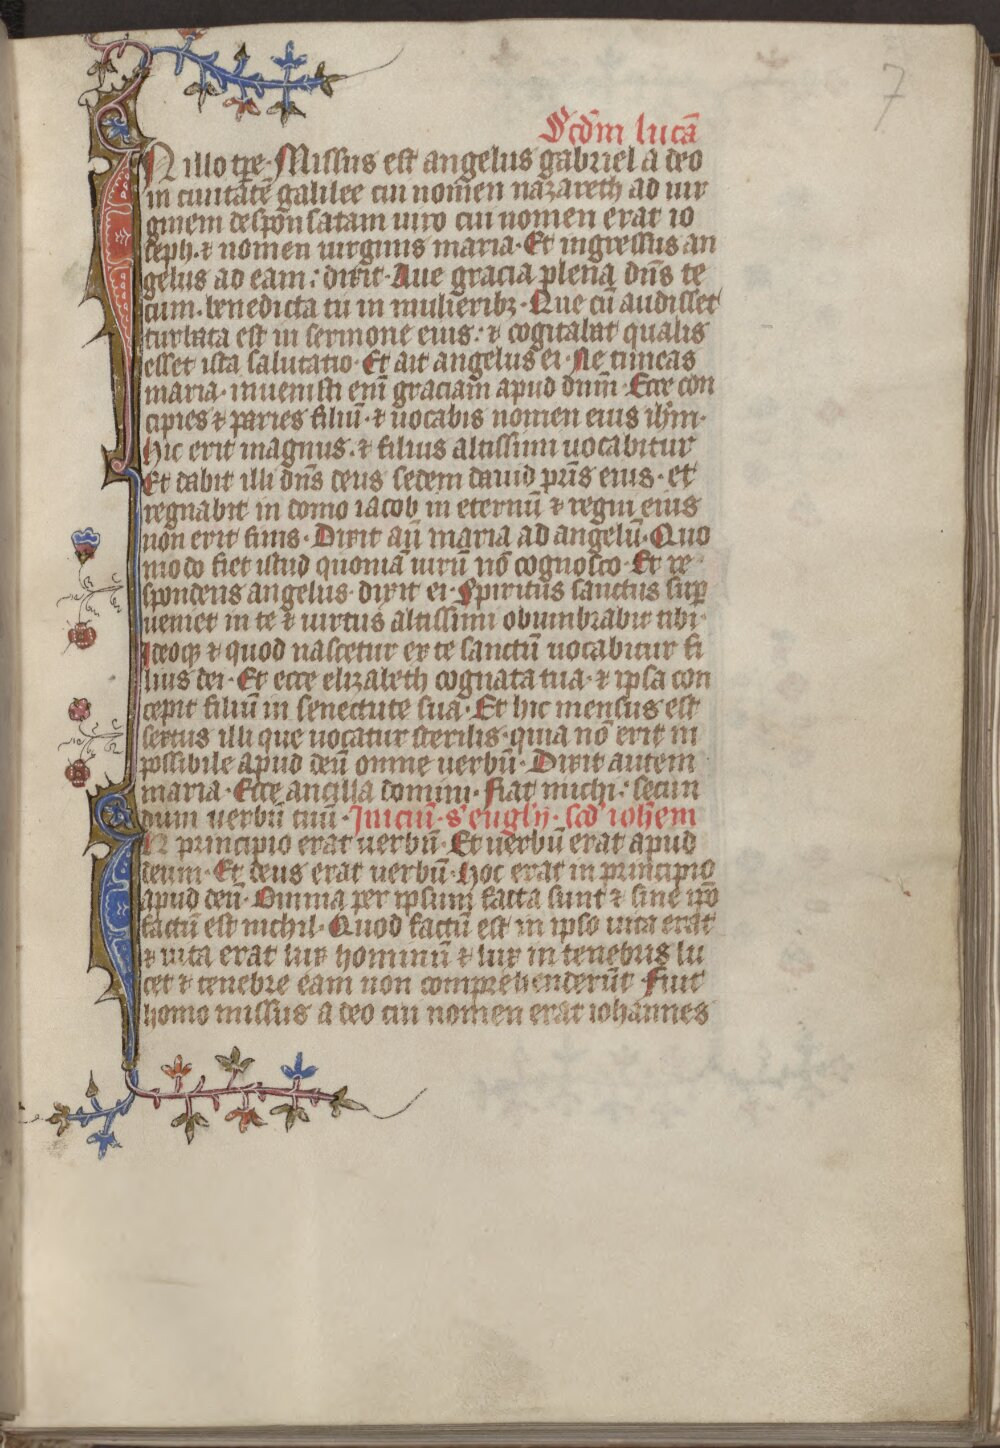 7
Scdm lucā
N illo tꝑe. Missus est angelus gabriel a deo
in ciuitate galilee cui nomen nazareth ad uir
ginem desponsatam uiro cui nomen erat io
seph. ⁊ nomen uirginis maria. Et ingressus an
gelus ad eam: dixit. Aue gracia plena dn̄s te
cum. benedicta tu in mulieribꝫ. Que cū audisset
turbata est in sermone eius: ⁊ cogitabat qualis
esset ista salutatio. Et ait angelus ei. Ne timeas
maria. inuenisti enī graciam apud dnm̄. Ecce con
cipies ⁊ paries filiū. ⁊ uocabis nomen eius ihm̄.
Hic erit magnus. ⁊ filius altissimi uocabitur
Et dabit illi dn̄s deus sedem dauid pr̄is eius. et
regnabit in domo iacob in eternū ⁊ regni eius
non erit finis. Dixit aū maria ad angelū. Quo
modo fiet istud quoniā uirū nō cognosco. Et re
spondens angelus. dixit ei. Spiritus sanctus suꝑ
ueniet in te ⁊ uirtus altissimi obumbrabit tibi.
Ideoqꝫ ⁊ quod nascetur ex te sanctū uocabitur fi
lius dei. Et ecce elizabeth cognata tua. ⁊ ipsa con
cepit filiū in senectute sua. Et hic mensus est
sextus illi que uocatur sterilis. quia nō erit in
possibile apud deū omne uerbū. Dixit autem
maria. Ecce ancilla domini. fiat michi: secun
dum uerbū tuū. Iniciū. s' eugl'ij. scd' ioh'em
N principio erat uerbū. Et uerbū erat apud
deum. Et deus erat uerbū. Hoc erat in principio
apud deū. Omnia per ipsum facta sunt ⁊ sine ip̄o
factū est nichil. Quod factū est in ipso uita erat
⁊ uita erat lux hominū ⁊ lux in tenebris lu
cet ⁊ tenebre eam non comprehenderūt. Fuit
homo missus a deo cui nomen erat iohannes